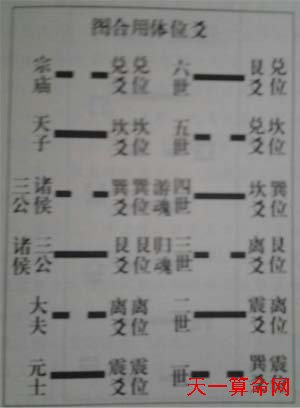 爻位体用合图
宗庙 兑爻 兑位 六世 艮爻 兑位
天子 坎爻 坎位 五世 兑爻 坎位
三公 诸侯 巽爻 巽位 游魂 四世 坎爻 巽位
诸侯 三公 艮爻 艮位 归魂 三世 离爻 艮位
大夫 离爻 离位 二世 震爻 离位
元士 震爻 震位 一世 巽爻 震位
天一算命网